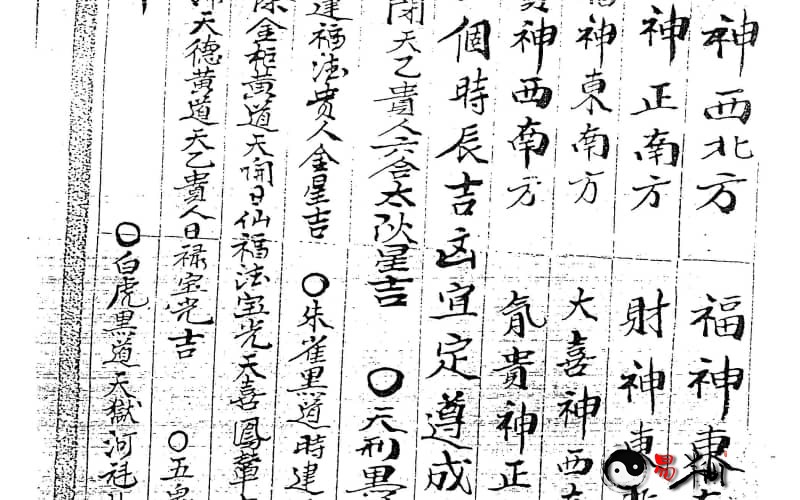 神西北方 福神東
神正南方 財神東
神東南方 大喜神西南
神西南方 貴神正
個時辰吉凶宜定遵成
閉天乙貴人六合太阴星吉 〇天刑黑
建福法贵人金星吉 〇朱雀黑道時建
除金柜黃道天開日仙福法宝光天喜鳳輦
天德黄道天乙貴人日禄宝光吉 〇五鬼
〇白虎黑道天獄河